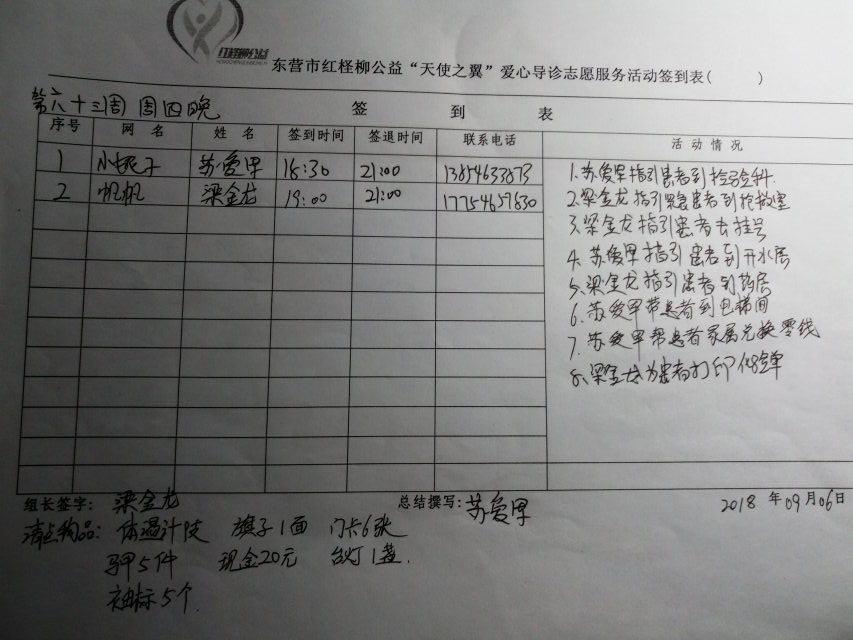 红柽柳公益
东营市红柽柳公益“天使之翼”爱心导诊志愿服务活动签到表( )
第六十三周 周四晚
签 到 表
序号 网 名 姓 名 签到时间 签退时间 联系电话 活 动 情 况
1 小妮子 苏爱甲 18:30 21:00 13854633873
2 帆帆 梁金龙 19:00 21:00 17754657630
1.苏爱甲指引患者到检验科.
2.梁金龙指引患者到抢救室
3.梁金龙指引患者去挂号
4.苏爱甲指引患者到开水房
5.梁金龙指引患者到药房
6.苏爱甲带患者到电梯间
7.苏爱甲帮患者家属兑换零钱
8.梁金龙为患者打印化验单
组长签字: 梁金龙 总结撰写: 苏爱甲 2018 年 09 月 06 日
清点物品: 体温计 旗子1面 门卡6张
马甲5件 现金20元 台灯1盏.
袖标5个.